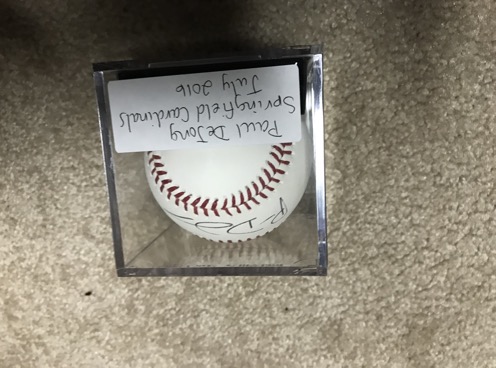 Paul DeJong
Springfield Cardinals
July 2016